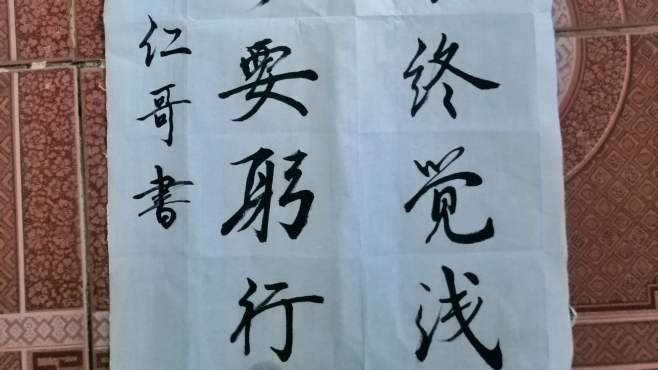 终觉浅
要躬行
仁哥書